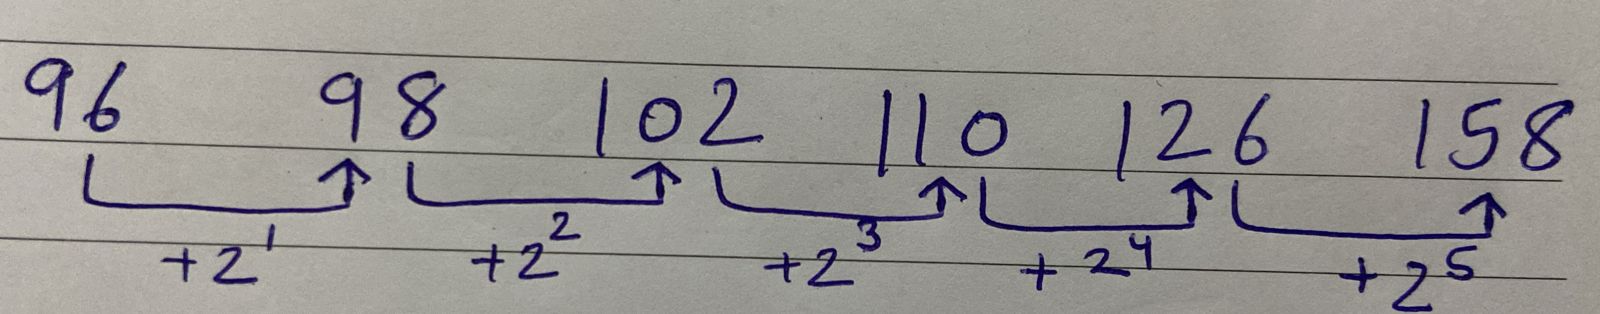 96 98 102 110 126 158
+2¹ +2² +2³ +2⁴ +2⁵